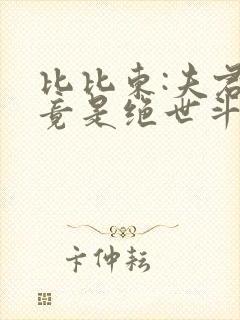 比比东:夫君
竟是绝世斗
卞仲耘